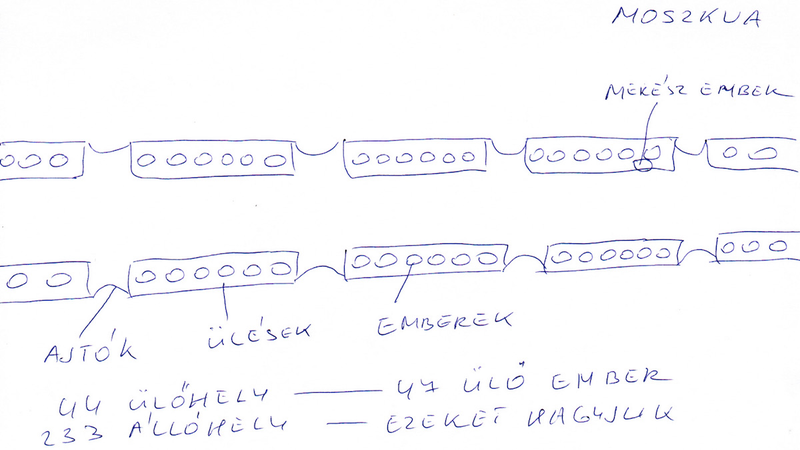 MOSZKVA
MERÉSZ EMBER
AJTÓK
ÜLÉSEK
EMBEREK
44 ÜLŐHELY — 47 ÜLŐ EMBER
233 ÁLLÓHELY — EZEKET HAGYJUK